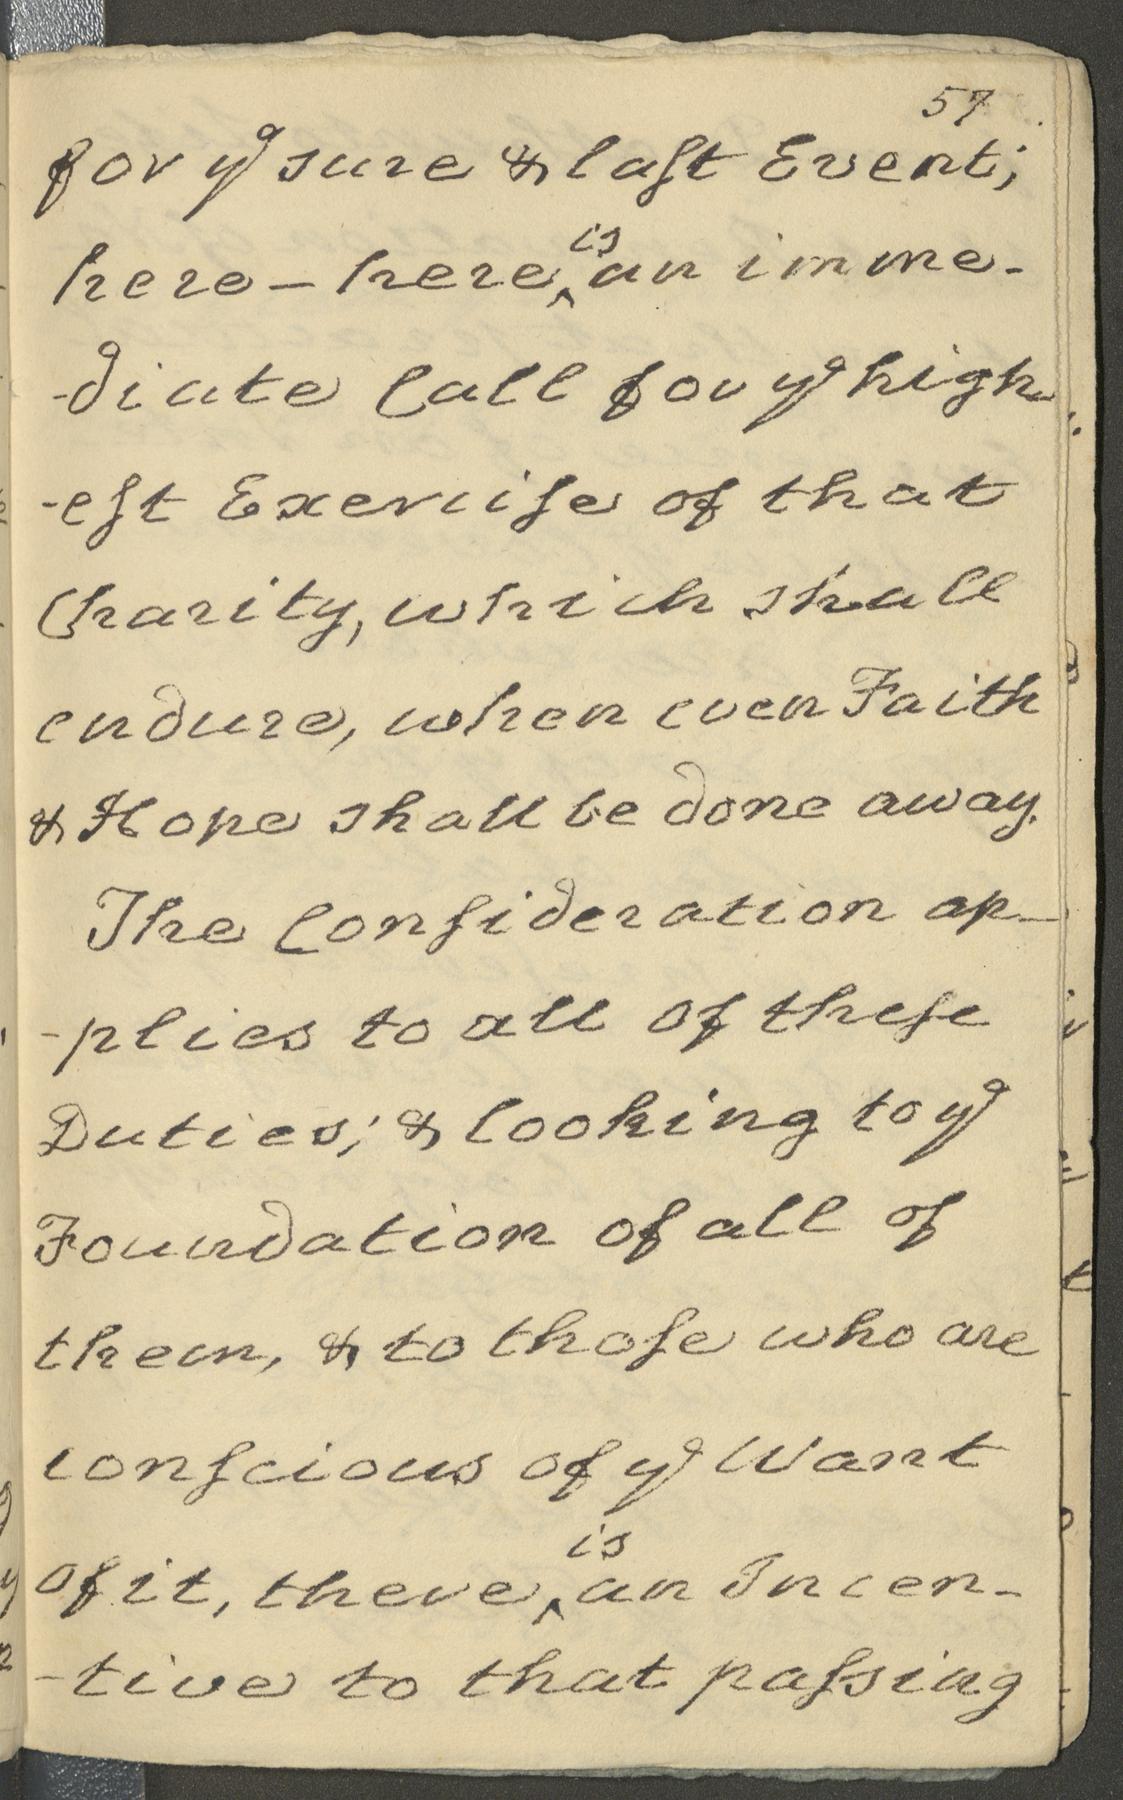 57
for yᵉ sure & laſt Event;
here – here ^is an imme-
-diate Call for yᵉ high
-eſt Exerciſe of that
Charity, which shall
endure, when even Faith
& Hope shall be done away.
The Conſideration ap-
-plies to all of theſe
Duties; & looking to yᵉ
Foundation of all of
them, & to thoſe who are
conſcious of yᵉ Want
of it, there ^is an Incen-
-tive to that paſsing